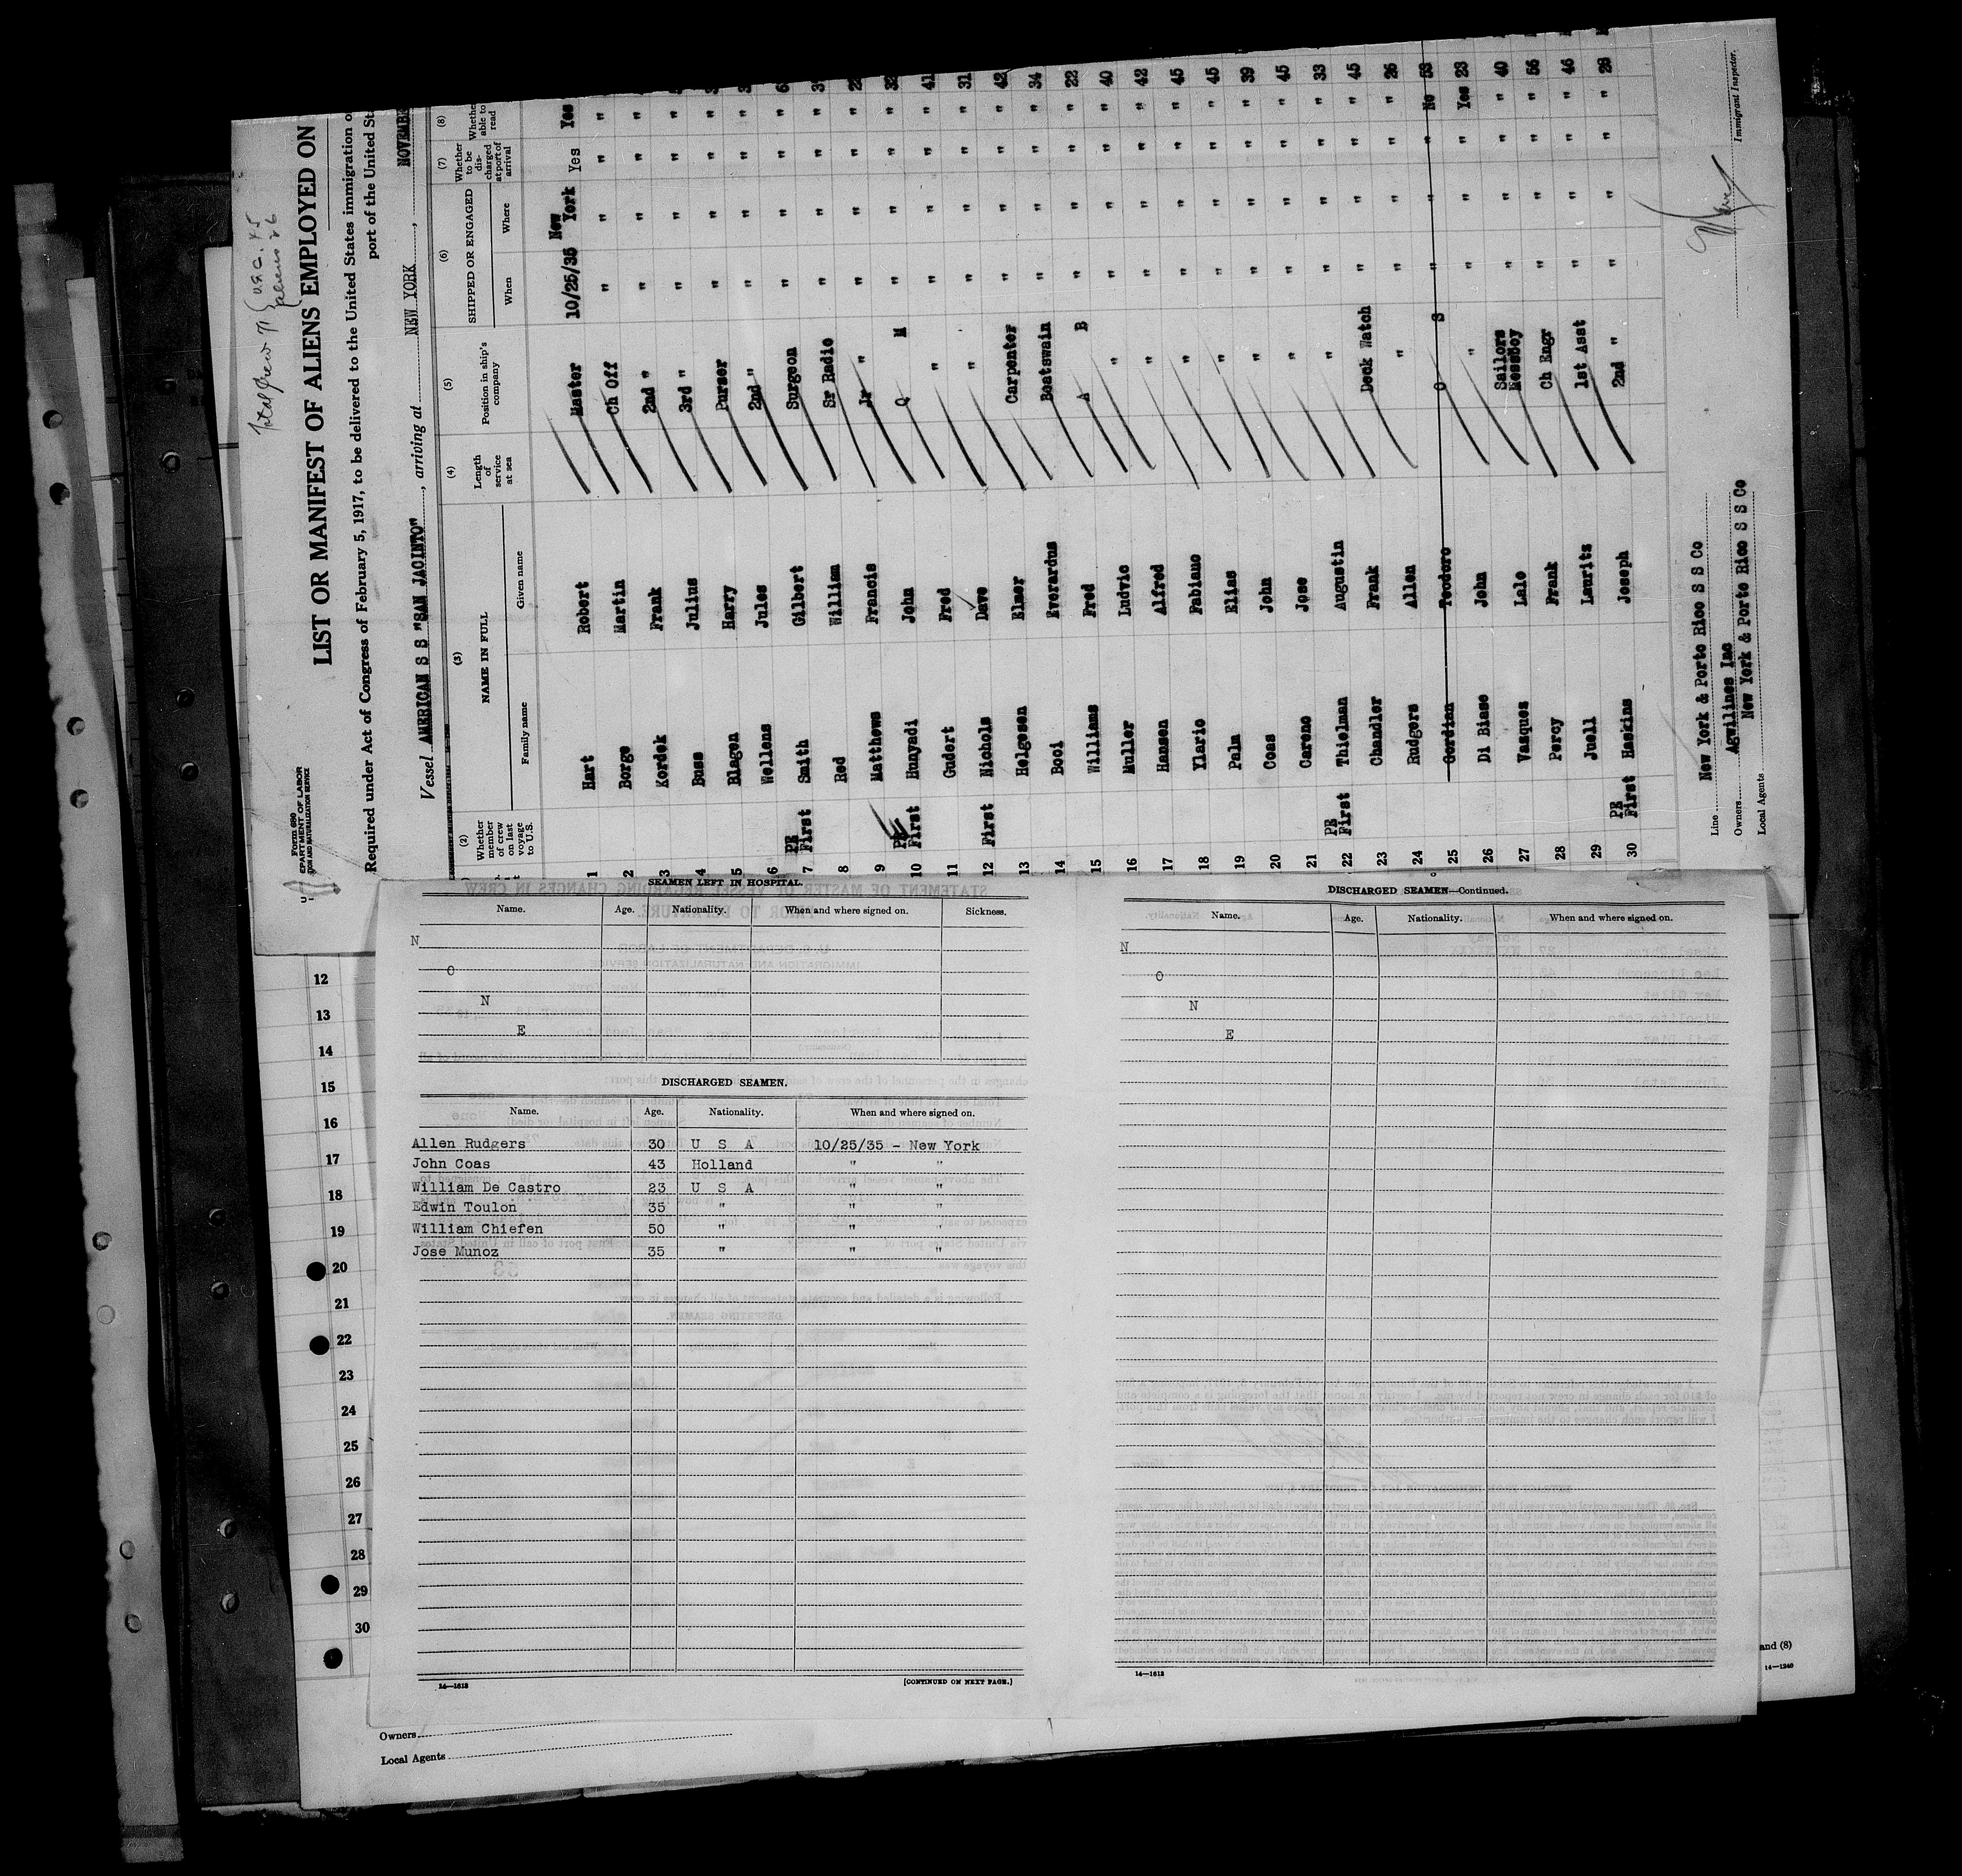 Total Crew 71 { U.S.C. 45
Aliens 26
Form 680
LIST OR MANIFEST OF ALIENS EMPLOYED ON
Required under Act of Congress of February 5, 1917, to be delivered to the United States immigration
port of the United
Vessel AMERICAN S S "SAN JACINTO", arriving at NEW YORK,
(2) (3) (4) (5) (6) (7) (8)
Whether member of crew on last voyage to U.S. NAME IN FULL Length of service at sea Position in ship's company SHIPPED OR ENGAGED Whether to be discharged at port of arrival Whether able to read
Family name Given name When Where
1 Hart Robert Master 10/25/35 New York Yes Yes
2 Borge Martin Ch Off " " " "
3 Kordek Frank 2nd " " " " "
4 Buss Julius 3rd " " " " "
5 Blagen Harry Purser " " " "
6 Wellens Jules 2nd " " " " "
7 PR First Smith Gilbert Surgeon " " " "
8 Red William Sr Radio " " " "
9 Matthews Francis Jr " " " " "
10 PR First Hunyadi John Q M " " " " 41
11 Gudert Fred " " " " " 31
12 First Nichols Dave " " " " " 42
13 Helgesen Elmer Carpenter " " " " 34
14 Booi Everardus Boatswain " " " " 22
15 Williams Fred A B " " " " 40
16 Muller Ludvic " " " " " 42
17 Hansen Alfred " " " " " 45
18 Ylario Fabiano " " " " " 45
19 Palm Elias " " " " " 39
20 Coas John " " " " " 45
21 Careno Jose " " " " " 33
22 PR First Thielman Augustin " " " " " 45
23 Chandler Frank Deck Watch " " " " 26
24 Rudgers Allen " " " " No 53
25 Gordian Teodoro O S " " " Yes 23
26 Di Biase John " " " " " 40
27 Vasques Lalo Sailors Messboy " " " " 56
28 Percy Frank Ch Engr " " " " 46
29 Juell Laurits 1st Asst " " " " 28
30 PR First Haskins Joseph 2nd " " " " "
Line New York & Porto Rico S S Co
Owners Agwilines Inc
Local Agents New York & Porto Rico S S Co
Immigrant Inspector.
SEAMEN LEFT IN HOSPITAL.
Name. Age. Nationality. When and where signed on. Sickness.
N
O
N
E
DISCHARGED SEAMEN.
Name. Age. Nationality. When and where signed on.
Allen Rudgers 30 U S A 10/25/35 - New York
John Coas 43 Holland " "
William De Castro 23 U S A " "
Edwin Toulon 35 " " "
William Chiefen 50 " " "
Jose Munoz 35 " " "
14—1613
[CONTINUED ON NEXT PAGE.]
DISCHARGED SEAMEN—Continued.
Name. Age. Nationality. When and where signed on.
N
O
N
E
14—1613
12
13
14
15
16
17
18
19
20
21
22
23
24
25
26
27
28
29
30
and (8)
14—1240
Owners
Local Agents